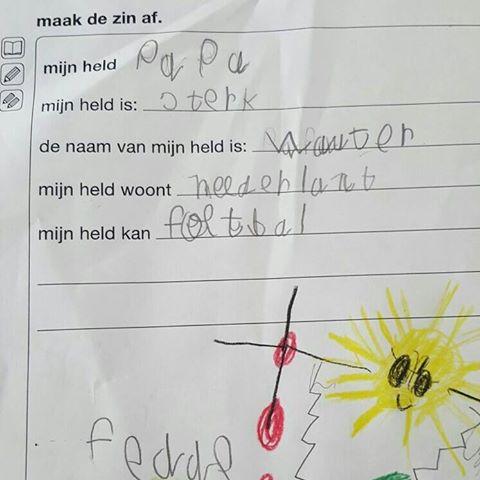 maak de zin af.
mijn held papa
mijn held is: sterk
de naam van mijn held is: wauter
mijn held woont neederlant
mijn held kan foltbal
fedde